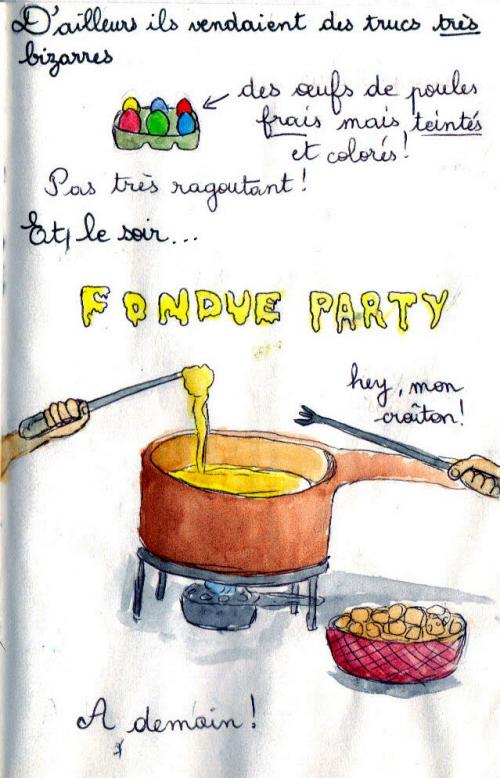 D'ailleurs ils vendaient des trucs très
bizarres
des œufs de poules
frais mais teintés
et colorés!
Pas très ragoutant!
Et, le soir...
FONDUE PARTY
hey, mon
croûton!
A demain!